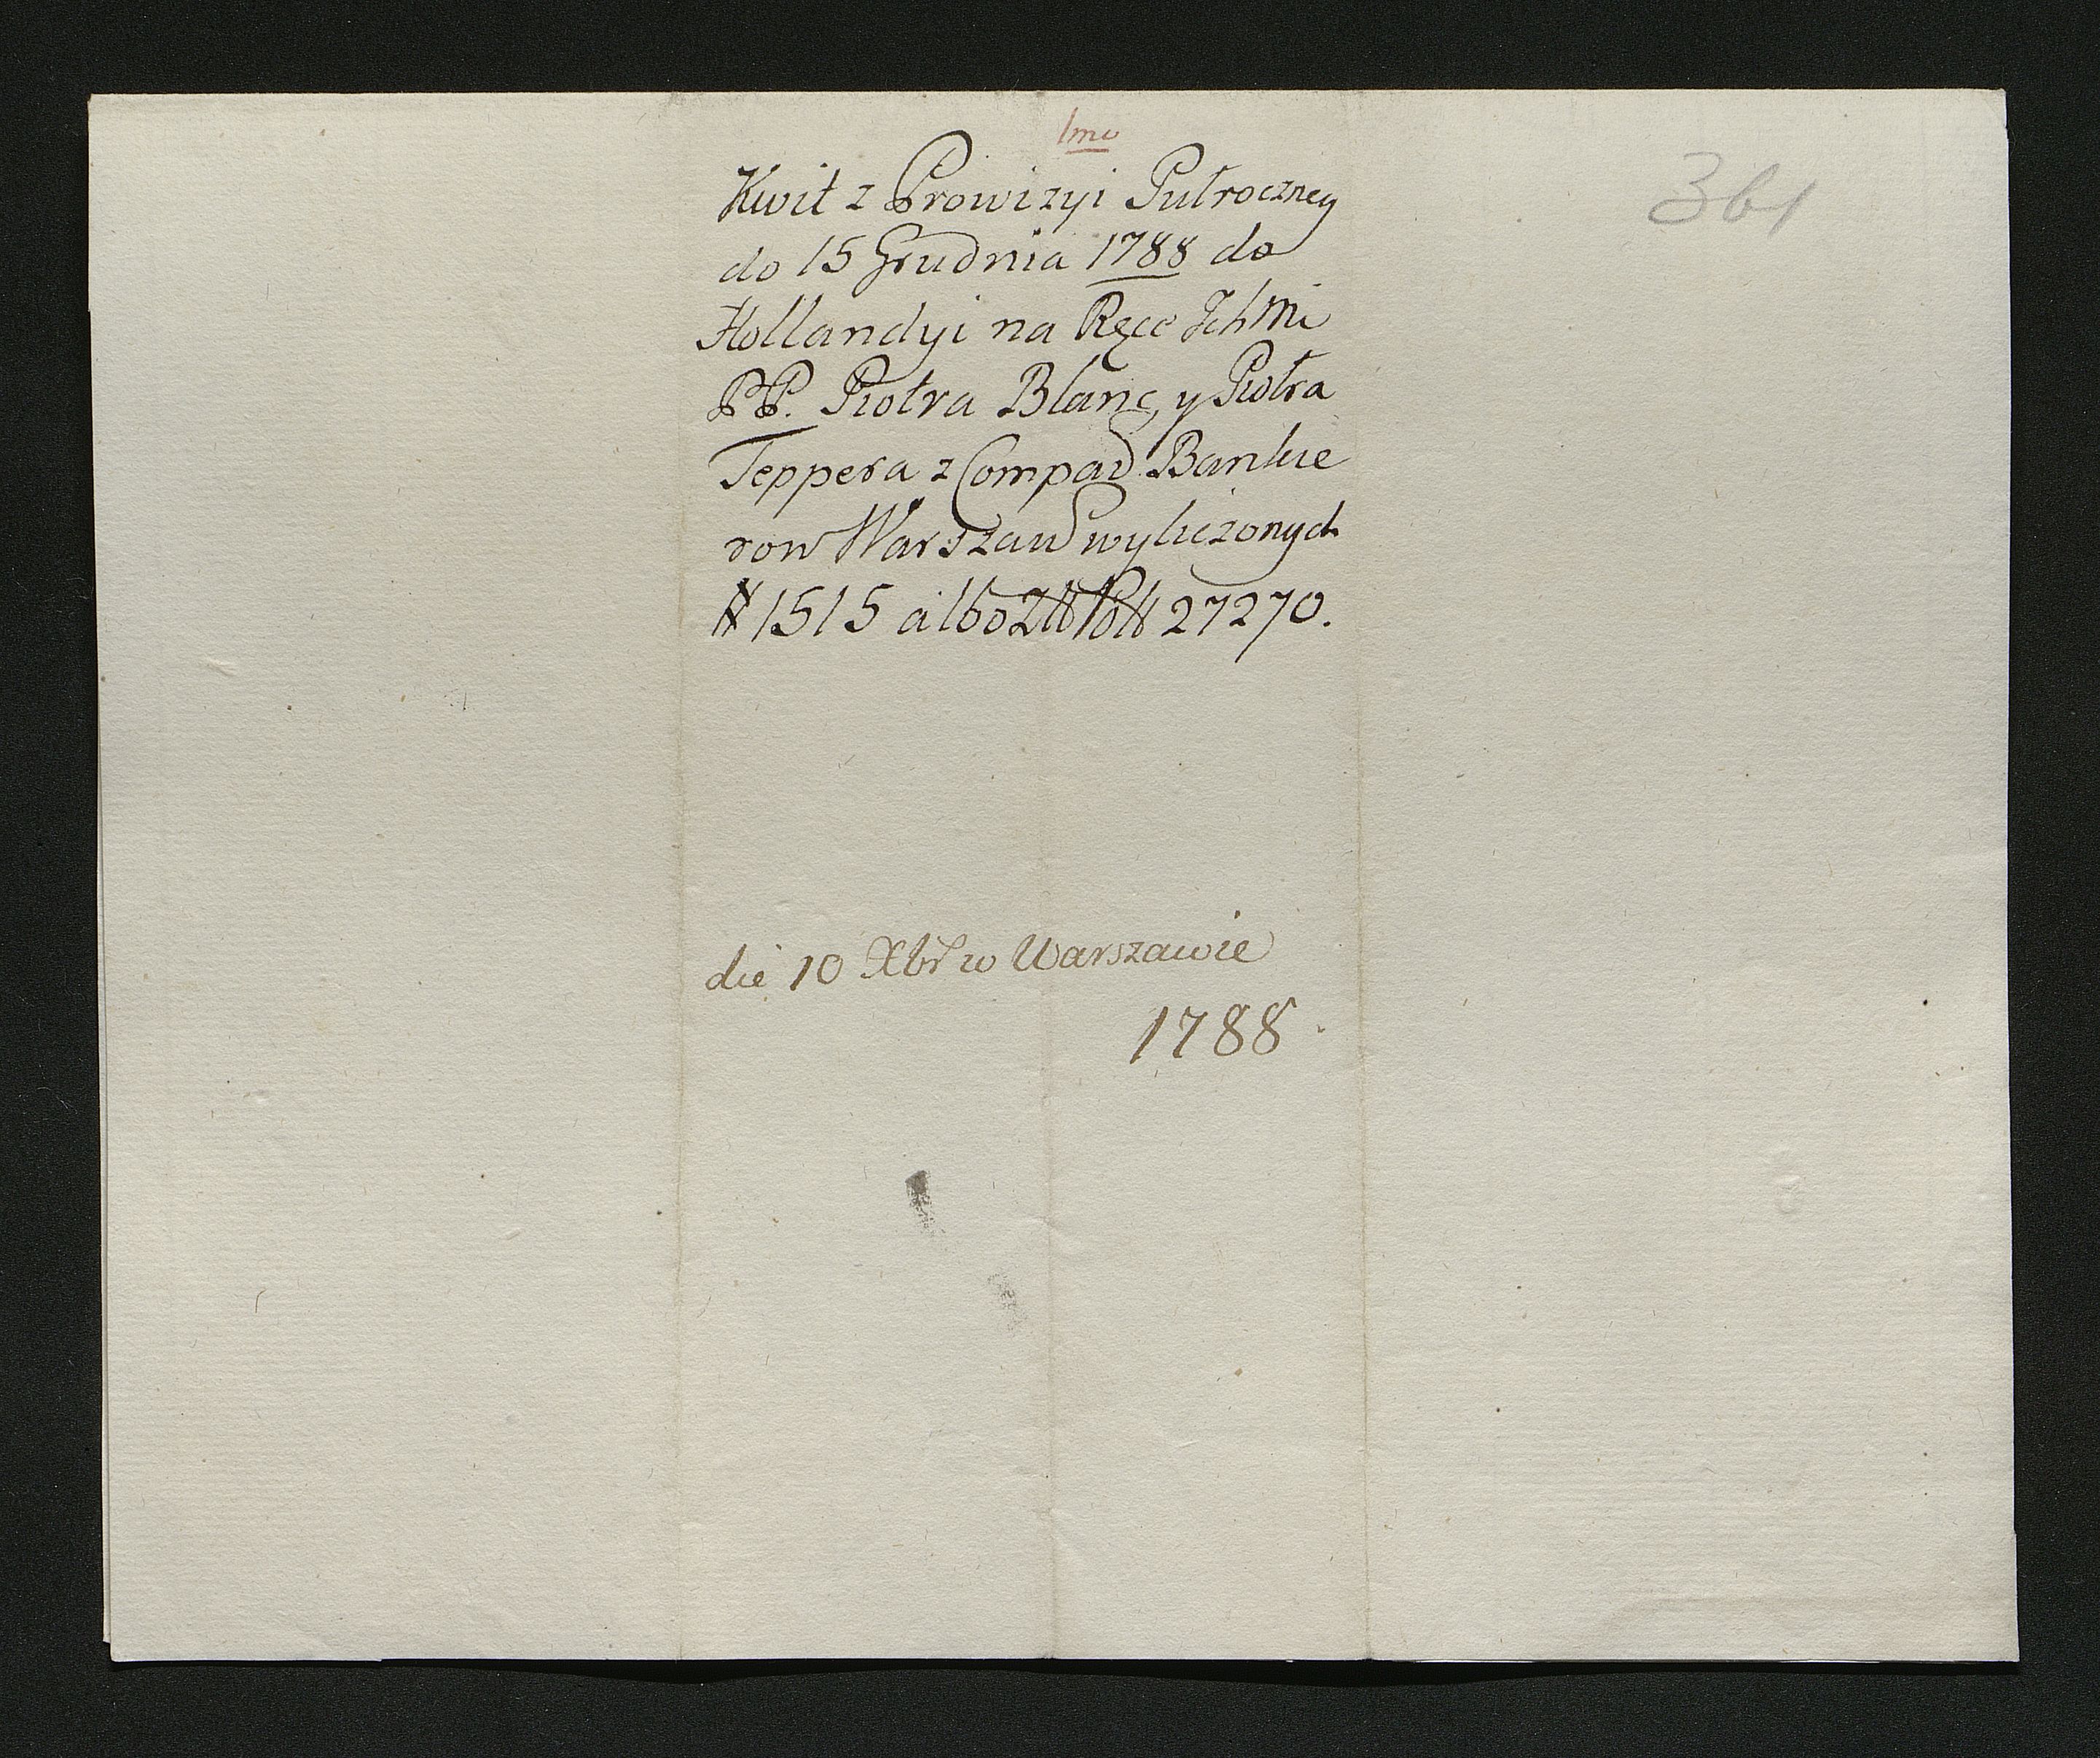 1mo
361
Kwit z Prowizyi Pułroczney
do 15 Grudnia 1788 do
Hollandyi na Ręce Ichmi
PP. Piotra Blanc, y Piotra
Teppera z Compad Bankie
row Warszaw wyliczonych
# 1515 albo Złł Poll 27270.
die 10 Xbr w Warszawie
1788.